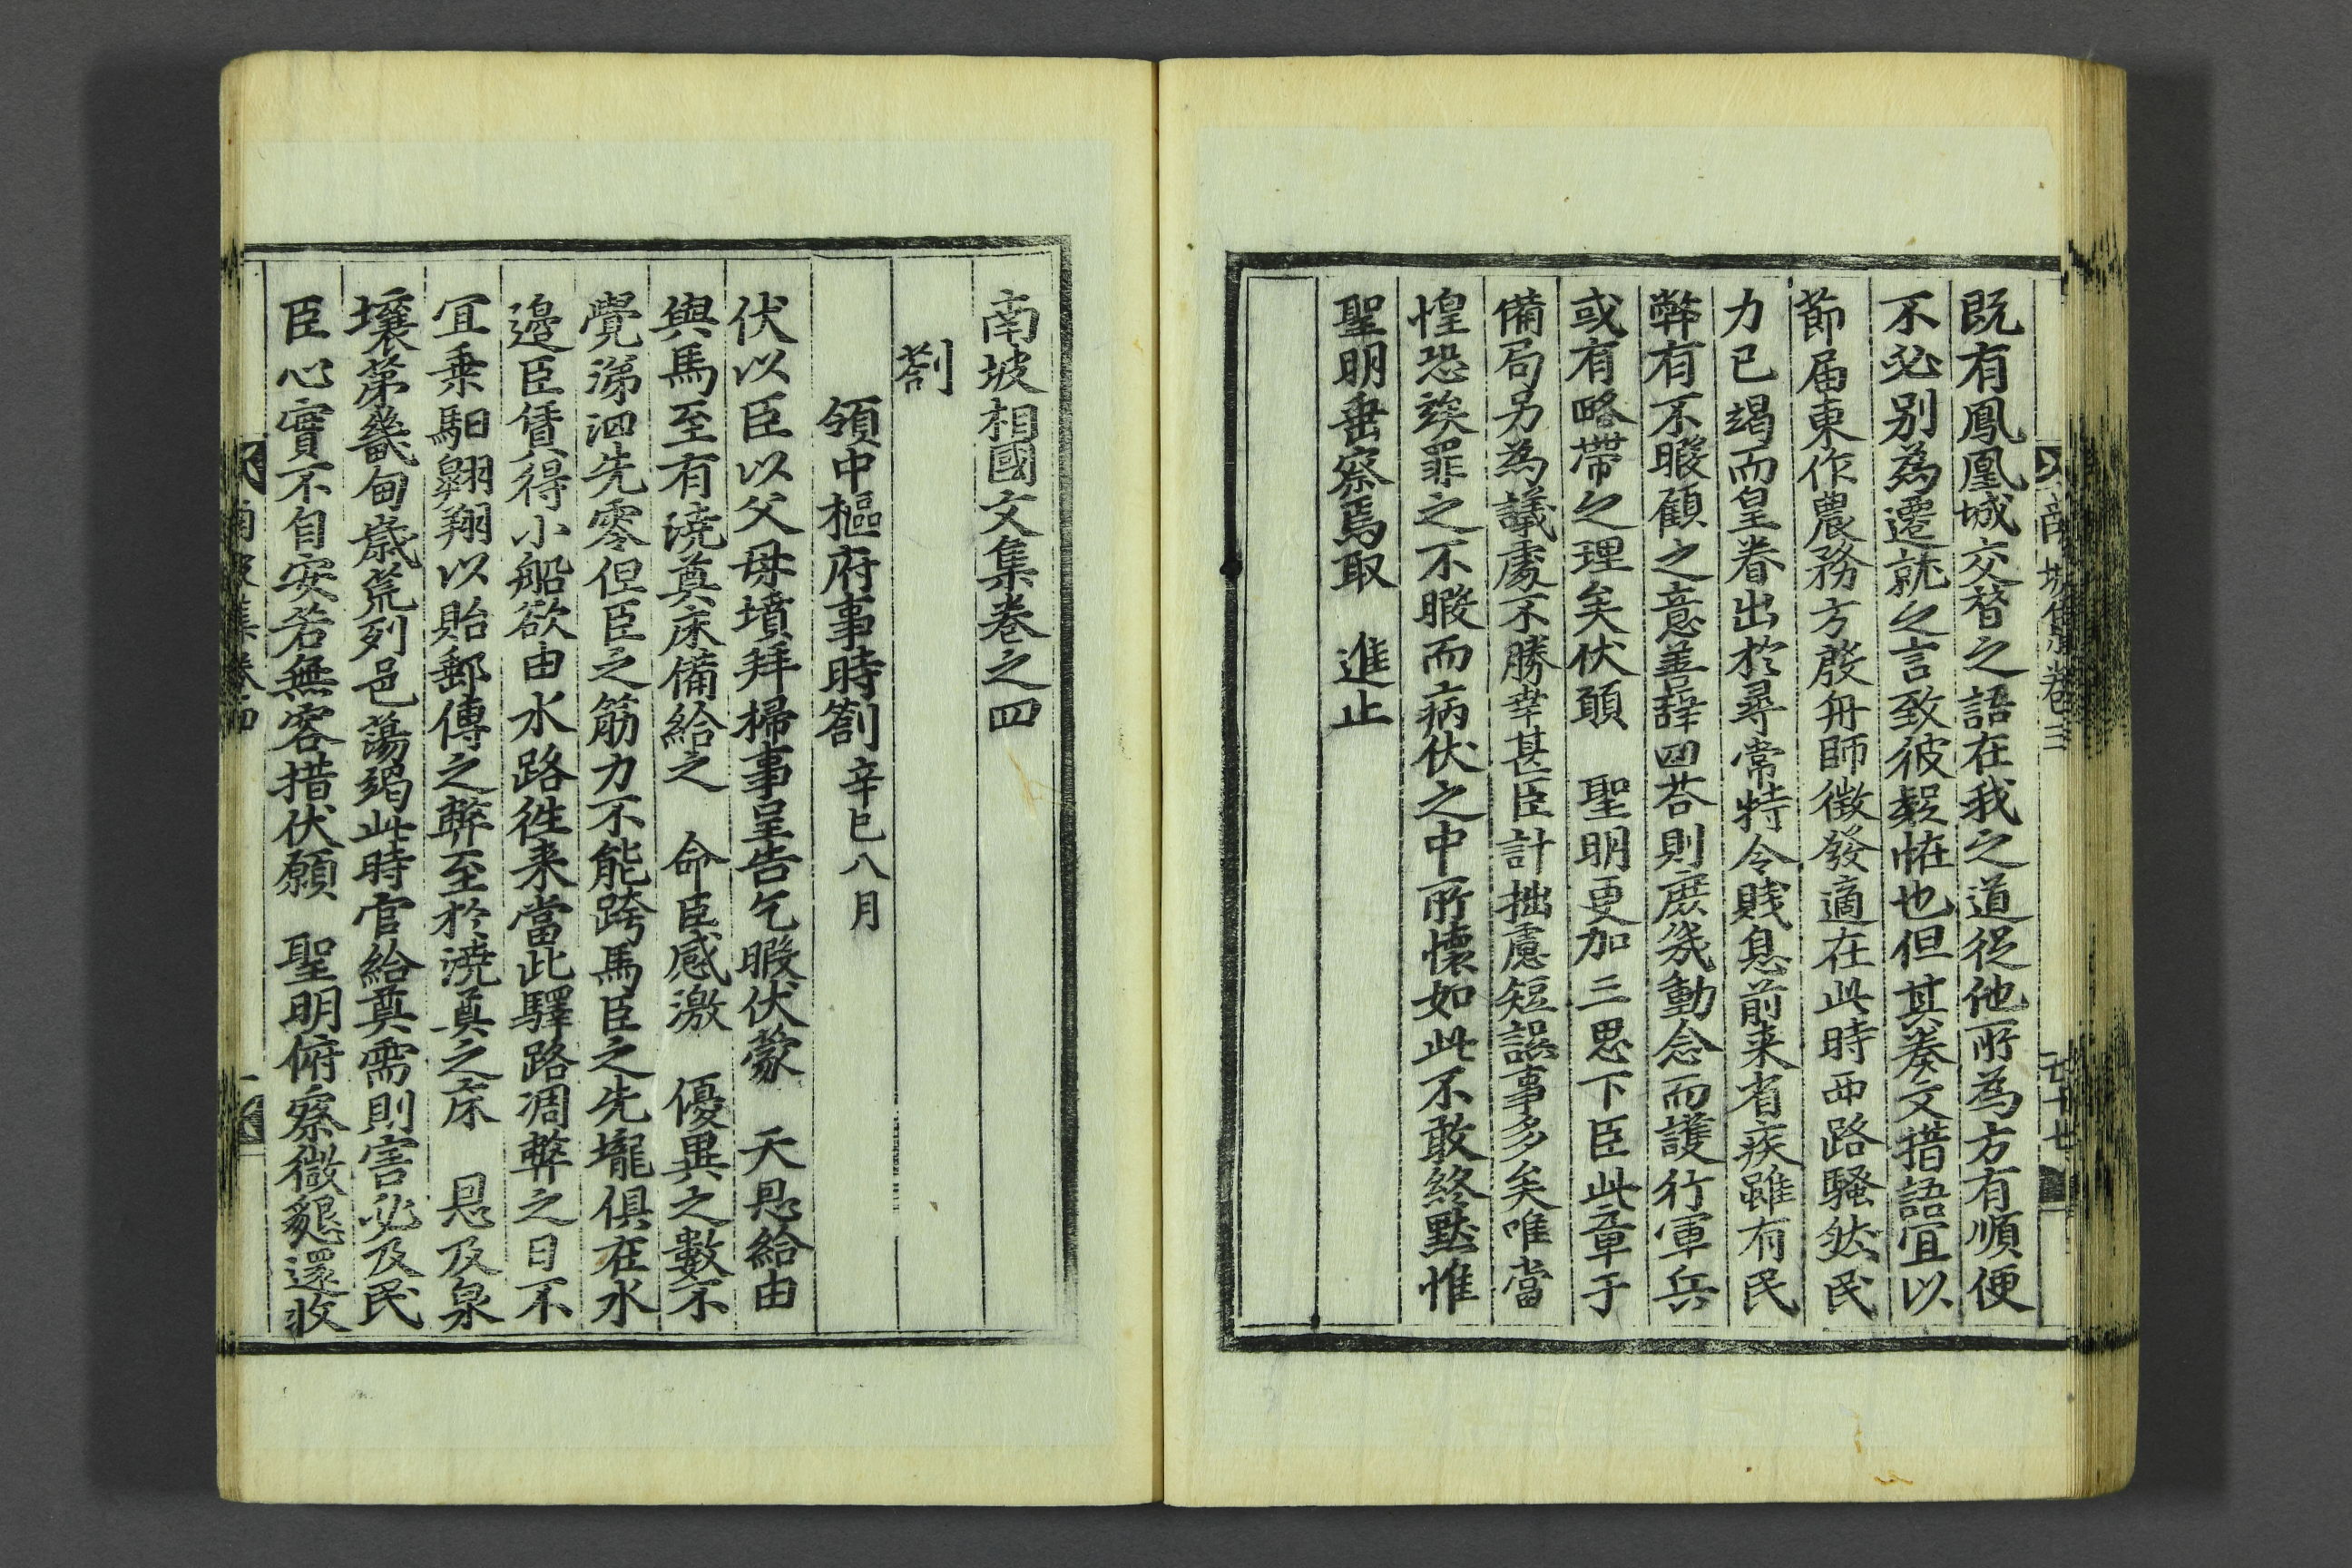 既有鳳凰城交替之語在我之道從他所為方有順便
不必別為遷就之言致彼疑恠也但其奏文措語宜以
節届東作農務方殷舟師徵發適在此時西路騷然民
力已竭而皇眷出於尋常特令賤息前来省疾雖有民
弊有不暇顧之意善辭回荅則庶幾動念而護行軍兵
或有略帶之理矣伏願　聖明更加三思下臣此章于
備局另為議處不勝幸甚臣計拙慮短誤事多矣唯當
惶恐竢罪之不暇而病伏之中所懷如此不敢終默惟
聖明垂察焉取　進止
南坡相國文集卷之四
劄
領中樞府事時劄辛巳八月
伏以臣以父母墳拜掃事呈告乞暇伏蒙　天恩給由
與馬至有澆奠床備給之　命臣感激　優異之數不
覺涕泗先零但臣之筋力不能跨馬臣之先壠俱在水
邊臣賃得小船欲由水路往来當此驛路凋弊之日不
宜乘馹翱翔以貽郵傳之弊至於澆奠之床　恩及泉
壤第畿甸歲荒列邑蕩竭此時官給奠需則害必及民
臣心實不自安若無容措伏願　聖明俯察微懇還收